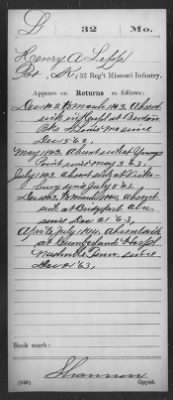 L 32 Mo.
Henry A. Lepp
Pvt., Co. K, 32 Reg't Missouri Infantry.
Appears on Returns as follows:
Dec 162 to March 163. Absent
sick in Hospl at Benton
Bks St Louis Mo since
Dec 15 62.
May 163 Absent sick at Youngs
Point since May 3 63.
July 163 absent sick at Vicks-
burg since July 5 63.
Dec 163 to March 164, absent
sick at Bridgeport Ala
since Dec 21 63,
April & July 164, absent sick
at Cumberland Hospl
Nashville Tenn. since
Dec 21 63.
Book mark:
Shannon
(546) Copyist.